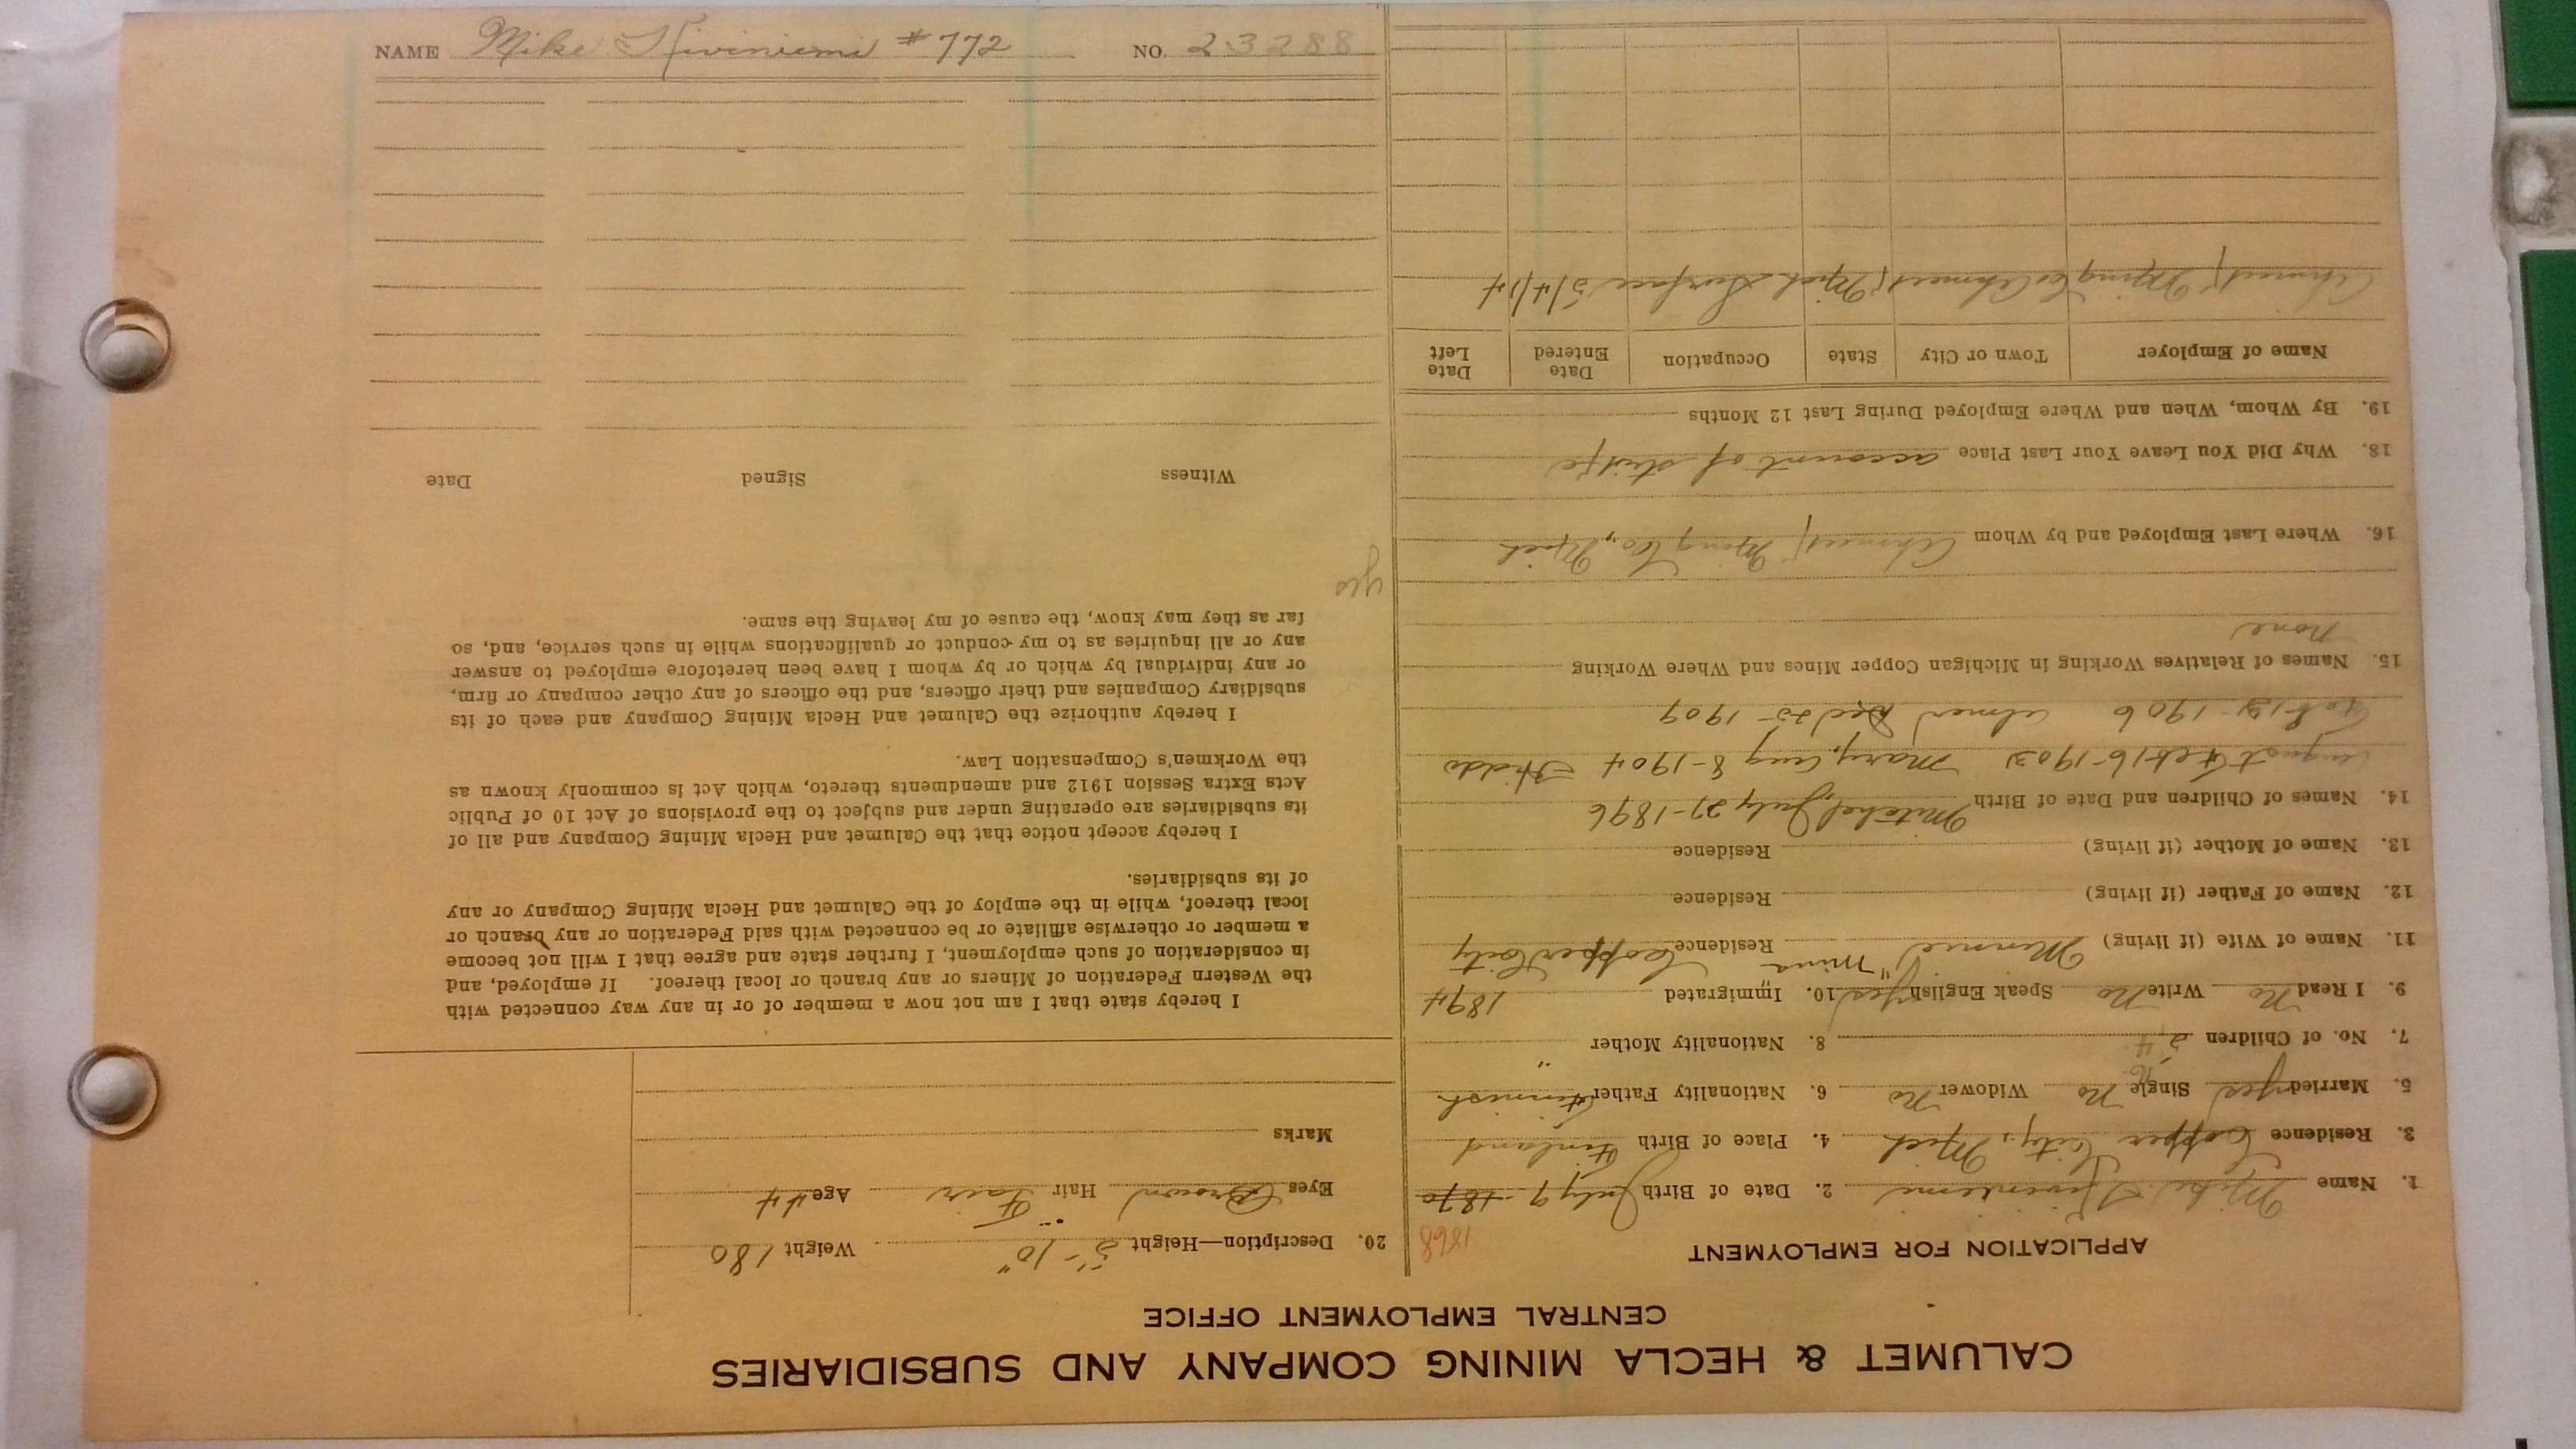 CALUMET & HECLA MINING COMPANY AND SUBSIDIARIES
CENTRAL EMPLOYMENT OFFICE
APPLICATION FOR EMPLOYMENT
1868
1. Name Mike Kiviniemi 2. Date of Birth July 9-1870
3. Residence Copper City, Mich 4. Place of Birth Finland
5. Married yes Single No Widower No 6. Nationality Father Finnish
7. No. of Children 5 4 8. Nationality Mother "
9. I Read No Write No Speak English yes 10. Immigrated 1894
"Mina"
11. Name of Wife (if living) Minnie Residence Copper City
12. Name of Father (if living) Residence
13. Name of Mother (if living) Residence
14. Names of Children and Date of Birth Mitchel July 27-1896
August Feb 16-1903 Mary, Aug 8-1904
1906 Dec 25-1909
15. Names of Relatives Working in Michigan Copper Mines and Where Working
None
16. Where Last Employed and by Whom Ahmeek Mining Co, Mich
18. Why Did You Leave Your Last Place account of strike
19. By Whom, When and Where Employed During Last 12 Months
Name of Employer Town or City State Occupation Date Entered Date Left
Ahmeek Mining Co Ahmeek Mich Surface 5/4/14
20. Description—Height 5'-10" Weight 180
Eyes Brown Hair Fair Age 44
Marks
I hereby state that I am not now a member of or in any way connected with
the Western Federation of Miners or any branch or local thereof. If employed, and
in consideration of such employment, I further state and agree that I will not become
a member or otherwise affiliate or be connected with said Federation or any branch or
local thereof, while in the employ of the Calumet and Hecla Mining Company or any
of its subsidiaries.
I hereby accept notice that the Calumet and Hecla Mining Company and all of
its subsidiaries are operating under and subject to the provisions of Act 10 of Public
Acts Extra Session 1912 and amendments thereto, which Act is commonly known as
the Workmen's Compensation Law.
I hereby authorize the Calumet and Hecla Mining Company and each of its
subsidiary Companies and their officers, and the officers of any other company or firm,
or any individual by which or by whom I have been heretofore employed to answer
any or all inquiries as to my conduct or qualifications while in such service, and, so
far as they may know, the cause of my leaving the same.
yes
Witness Signed Date
NAME Mike Kiviniemi #772 NO. 23288